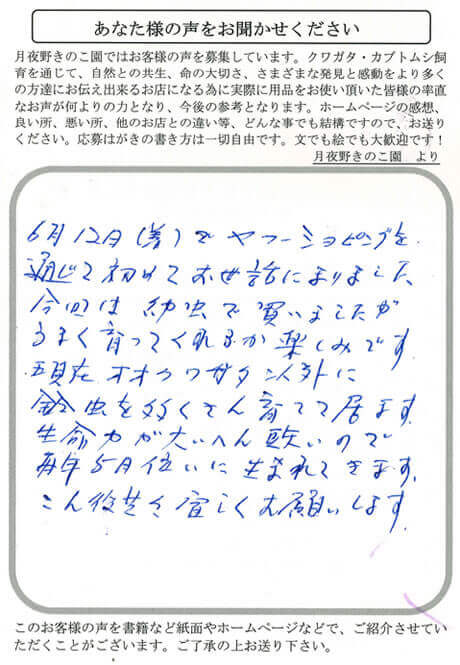 あなた様の声をお聞かせください
月夜野きのこ園ではお客様の声を募集しています。クワガタ・カブトムシ飼
育を通じて、自然との共生、命の大切さ、さまざまな発見と感動をより多く
の方達にお伝え出来るお店になる為に実際に用品をお使い頂いた皆様の率直
なお声が何よりの力となり、今後の参考となります。ホームページの感想、
良い所、悪い所、他のお店との違い等、どんな事でも結構ですので、お送り
ください。応募はがきの書き方は一切自由です。文でも絵でも大歓迎です！
月夜野きのこ園　より
6月12日（着）でヤフーショピングを
通じて初めてお世話になりました
今回は幼虫で買いましたが
うまく育ってくれるか楽しみです.
現在オオクワガタ以外に
鈴虫を多くさん育てて居ます.
生命力がたいへん強いので
毎年5月位いに生まれてきます.
こん後共宜しくお願いします.
このお客様の声を書籍など紙面やホームページなどで、ご紹介させてい
ただくことがございます。ご了承の上お送り下さい。